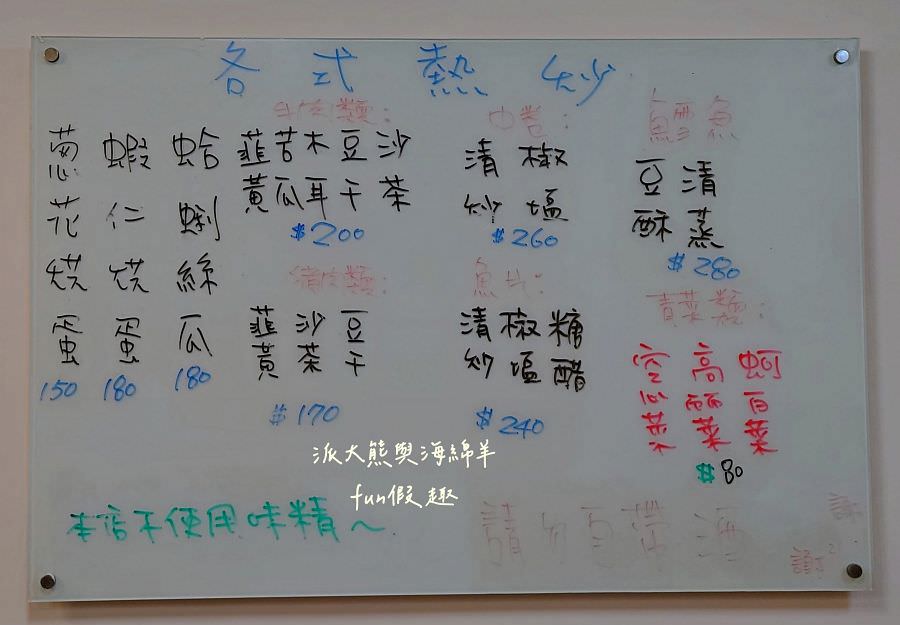 各式熱炒
蔥花烘蛋
150
蝦仁烘蛋
180
蛤蜊絲瓜
180
牛肉類：
韮黃
苦瓜
木耳
豆干
沙茶
$200
豬肉類：
韮黃
沙茶
豆干
$170
中卷：
清炒
椒塩
$260
魚片：
清炒
椒塩
糖醋
$240
鱈魚
豆酥
清蒸
$280
青菜類：
空心菜
高麗菜
蚵白菜
$80
派大熊與海綿羊
fun假趣
本店不使用味精~
請勿自帶酒
謝